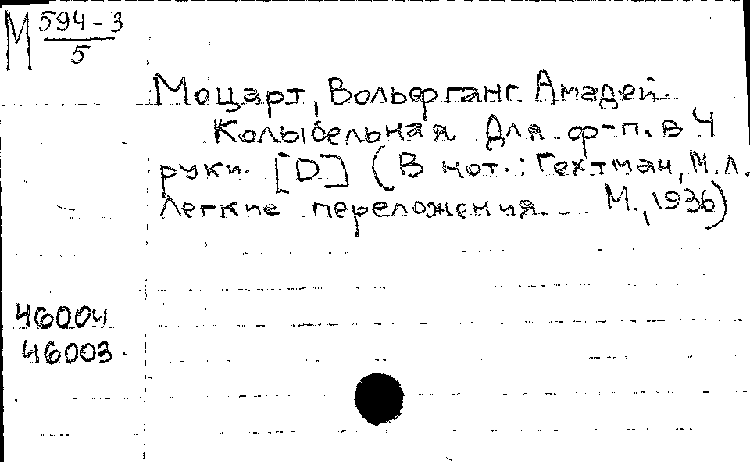 М 594-3
5
Моцарт, Вольфганг Амадей.
Колыбельная. Для ф-п. в 4
руки. [D] (В нот.: Гехтман, М.Л.
Легкие переложения... М., 1936)
46004
46003.